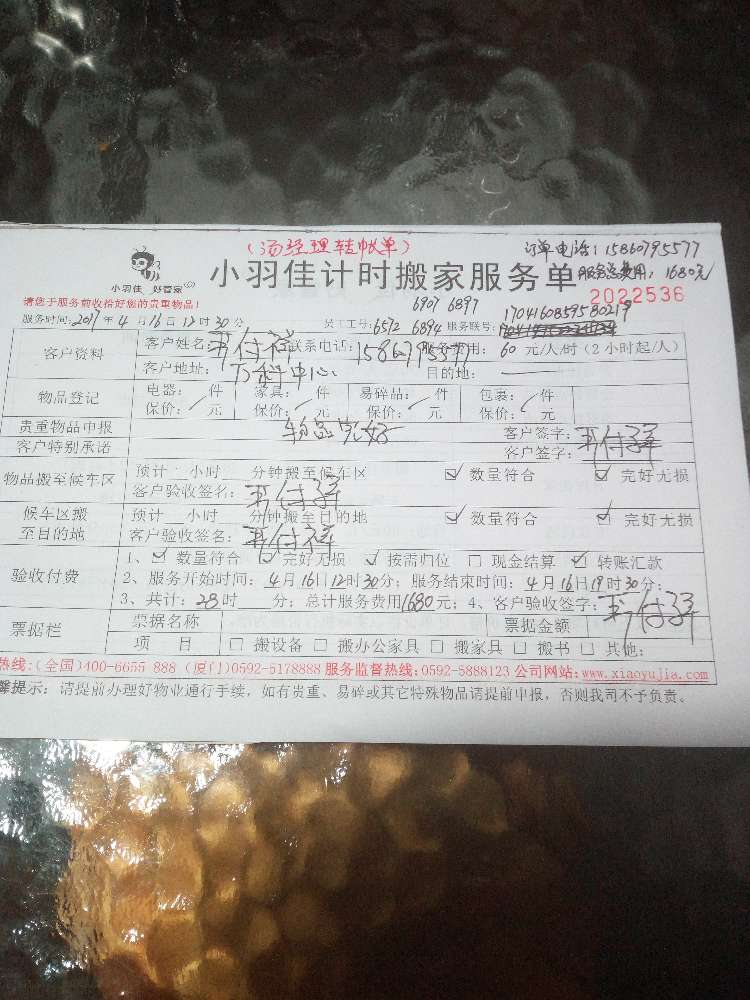 (汤经理转帐单)
订单电话:15860795577
小羽佳 好管家
小羽佳计时搬家服务单
服务总费用:1680元
2022536
请您于服务前收拾好您的贵重物品!
6907 6897
1704160859580219
服务时间:2017年4月16日12时30分 员工工号:6572 6894 服务联号:
客户资料
客户姓名: 联系电话:15860795577 服务费用:60元/人/时(2小时起/人)
客户地址:万科中心 目的地:
物品登记
电器: 件 家具: 件 易碎品: 件 包裹: 件
保价: 元 保价: 元 保价: 元 保价: 元
贵重物品申报 物品完好 客户签字:
客户特别承诺 客户签字:
物品搬至候车区
预计 小时 分钟搬至候车区 ☑ 数量符合 ☑ 完好无损
客户验收签名:
候车区搬至目的地
预计 小时 分钟搬至目的地 ☑ 数量符合 ☑ 完好无损
客户验收签名:
验收付费
1、☑ 数量符合 ☑ 完好无损 ☑ 按需归位 □ 现金结算 ☑ 转账汇款
2、服务开始时间:4月16日12时30分;服务结束时间:4月16日19时30分;
3、共计:28时 分;总计服务费用1680元;4、客户验收签字:
票据栏
票据名称 票据金额
项 目 □ 搬设备 □ 搬办公家具 □ 搬家具 □ 搬书 □ 其他:
热线:(全国)400-6655 888 (厦门)0592-5178888 服务监督热线:0592-5888123 公司网站:www.xiaoyujia.com
馨提示:请提前办理好物业通行手续,如有贵重、易碎或其它特殊物品请提前申报,否则我司不予负责。